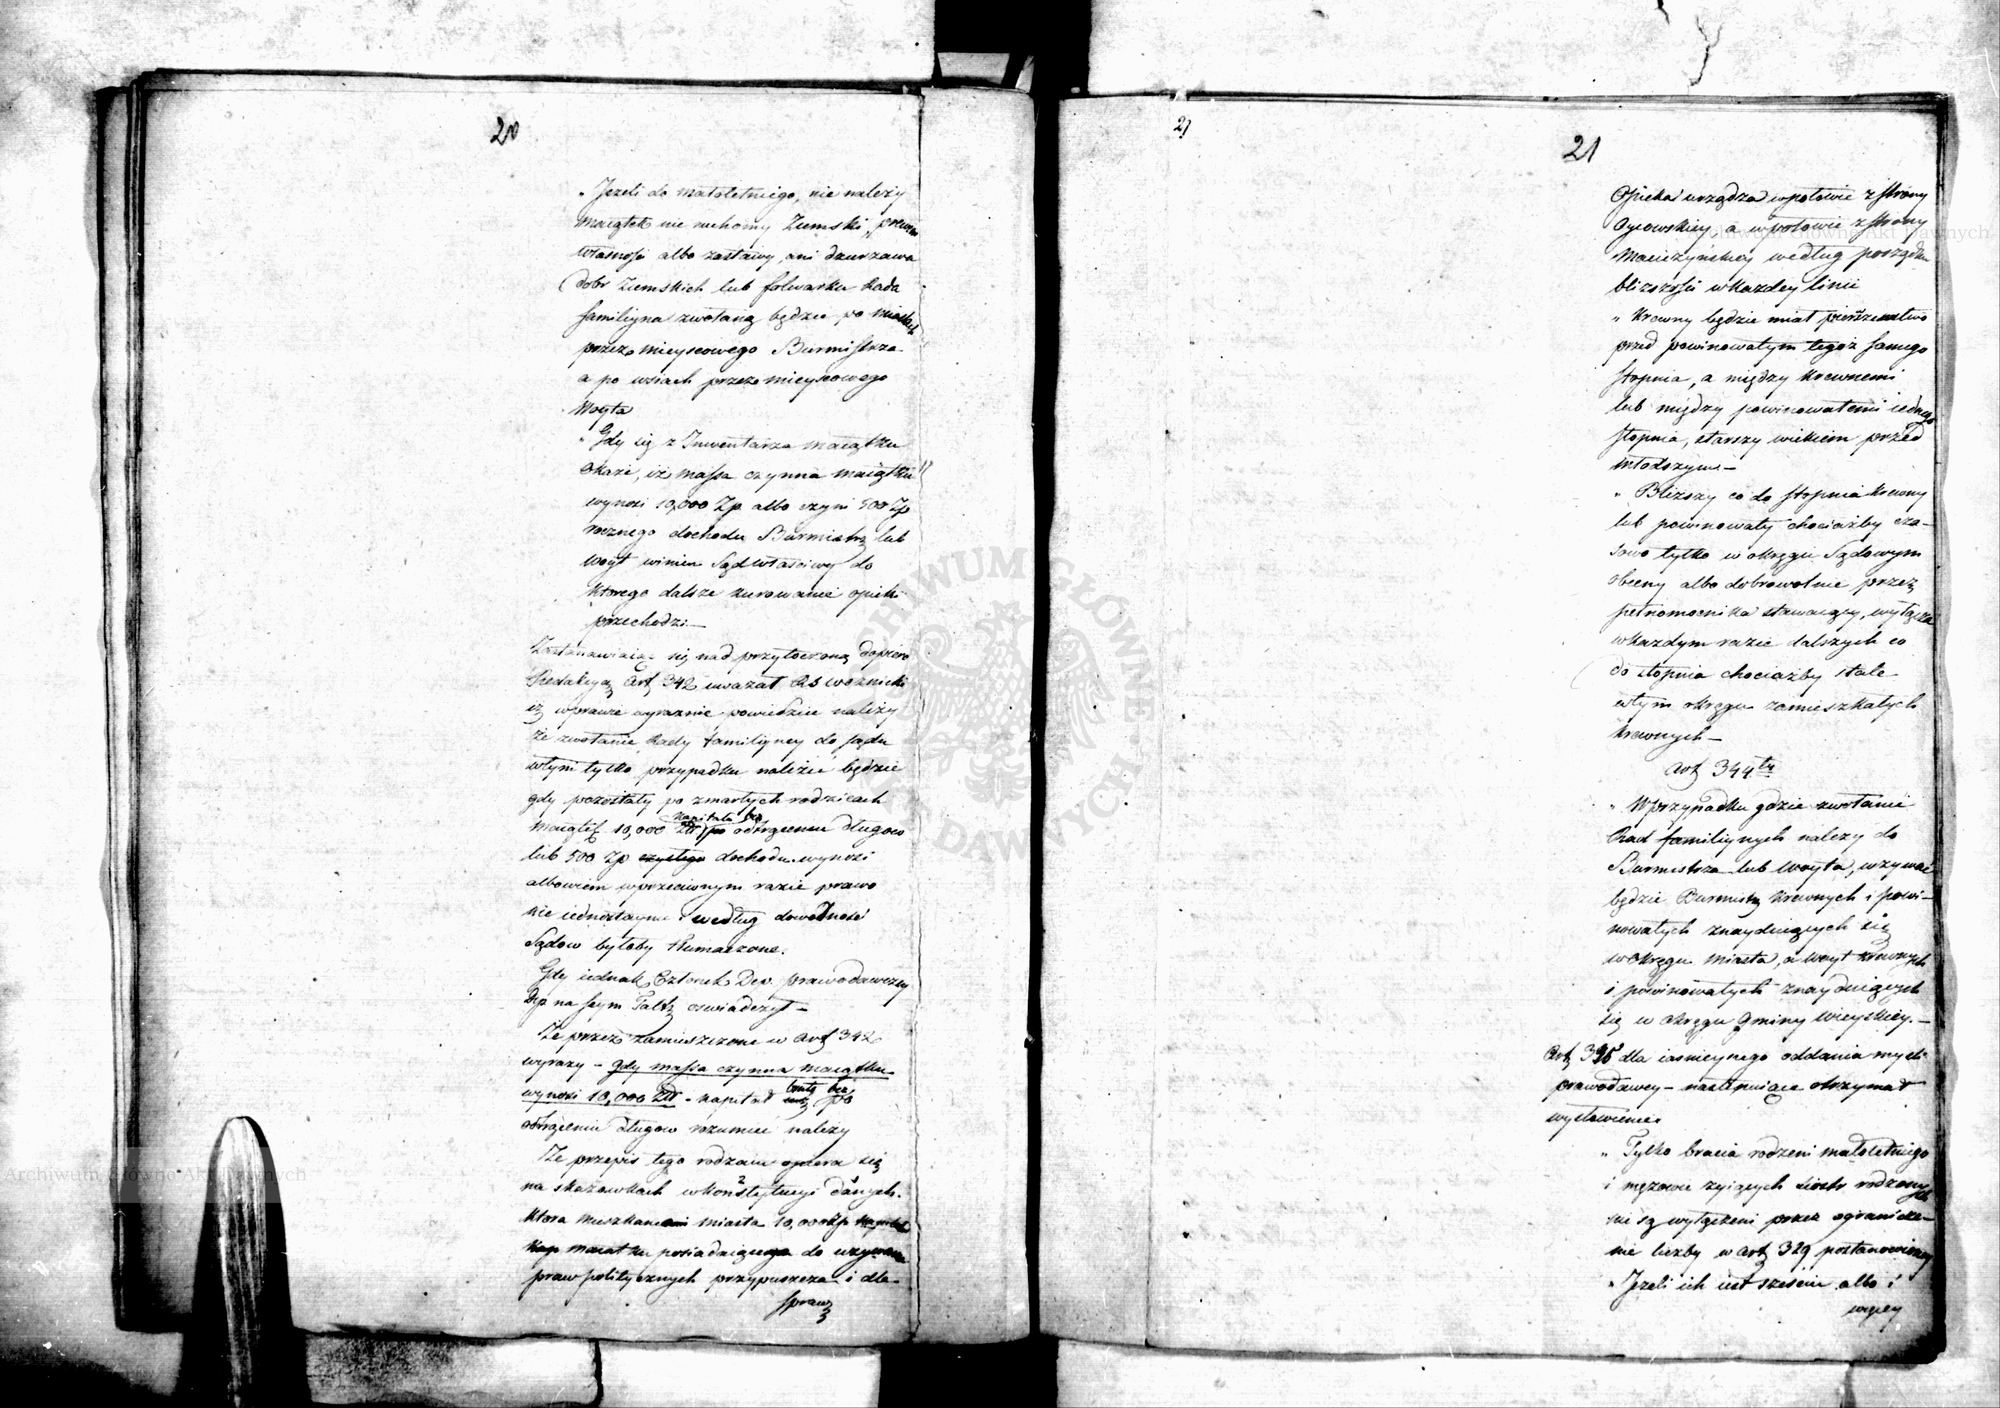 20
„Jezeli do małoletniego, nie należy
maiątek nie ruchomy Ziemski, prawem
własnosci albo zastawy, ani dzierzawa
dobr Ziemskich lub folwarku Rada
familiyna zwołaną będzie po miastach
przez mieyscowego Burmistrza
a po wsiach przez mieyscowego
Woyta
„Gdy się z Inwentarza maiątku
okaze, iż massa czynna maiątku
wynosi 10,000 Zp albo czyni 500 Zp
rocznego dochodu Burmistrz lub
woyt winien Sąd właściwy do
ktorego dalsze kierowanie opieki
przechodzi.—
Zastanawiaiąc się nad przytoczoną dopiero
Redakcyą Art 342 uważał
iż w prawie wyraznie powiedzieć należy
że zwołanie Rady familiyney do sądu
wtym tylko przypadku należeć będzie
gdy pozostały po zmarłych rodzicach
maiątek 10,000 Zł po odtrąceniu długow
lub 500 Zp czystego dochodu wynosi
albowiem w przeciwnym razie prawo
nie iednostaynie według dowolnosci
Sądow byłoby tłumaczone.
Gdy iednak Członek Dep. prawodawczey
Dep na Seym Faltz oswiadczył —
Że przez zamieszczone w Art 342
wyrazy – gdy massa czynna maiątku
wynosi 10,000 Zł – kapitał po
odtrąceniu długow rozumieć należy
Że przepis tego rodzaiu opiera się
na skazowkach w konstytucyi danych.
ktora mieszkancom miasta 10,000 Zp
posiadaiącego do używania
praw politycznych przypuszcza i dla
spraw
21
21
Opieka urządza w połowie z strony
Oycowskiey, a w połowie z strony
Macierzyńskiey według porządku
blizszości w każdey linii
„Krewny będzie miał pierszenstwo
przed powinowatym tegoż samego
stopnia, a między krewnemi
lub między powinowatemi iednego
stopnia, starszy wiekiem przed
młodszym —
„Blizszy co do stopnia krewny
lub powinowaty chociażby cza-
sowo tylko w okręgu Sądowym
obecny albo dobrowolnie przez
pełnomocnika stawaiący, wyłącza
w każdym razie dalszych co
do stopnia chociażby stale
wtym okręgu zamieszkałych
krewnych —
Art 344ty
„W przypadku gdzie zwołanie
Rad familiynych należy do
Burmistrza lub Woyta, wzywać
będzie Burmistrz krewnych i powi-
nowatych znayduiących się
w okręgu miasta, a woyt krewnych
i powinowatych znayduiących
się w okręgu Gminy Wieyskiey.—
Art 345 dla iaśnieyszego oddania mysli
prawodawcy – następuiące otrzymał
wysłowienie
„Tylko bracia rodzeni małoletniego
i mężowie żyiących siostr rodzonych
nie są wyłączeni przez ogranicze-
nie liczby w Art 329 postanowioney
„Jezeli ich iest szesciu albo i
więcey
Archiwum Główne Akt Dawnych
Archiwum Główne Akt Dawnych
ARCHIWUM GŁÓWNE AKT DAWNYCH